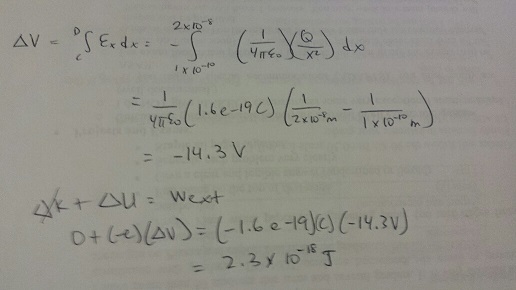 ΔV = ᴰ∫c Ex dx = -∫ 2×10⁻⁸ 1×10⁻¹⁰ (1/4πε₀)(Q/x²) dx
= 1/4πε₀ (1.6e-19C) (1/2×10⁻⁸m - 1/1×10⁻¹⁰m)
= -14.3 V
ΔK + ΔU = Wext
0 + (-e)(ΔV) = (-1.6e-19)(C)(-14.3V)
= 2.3 × 10⁻¹⁸ J